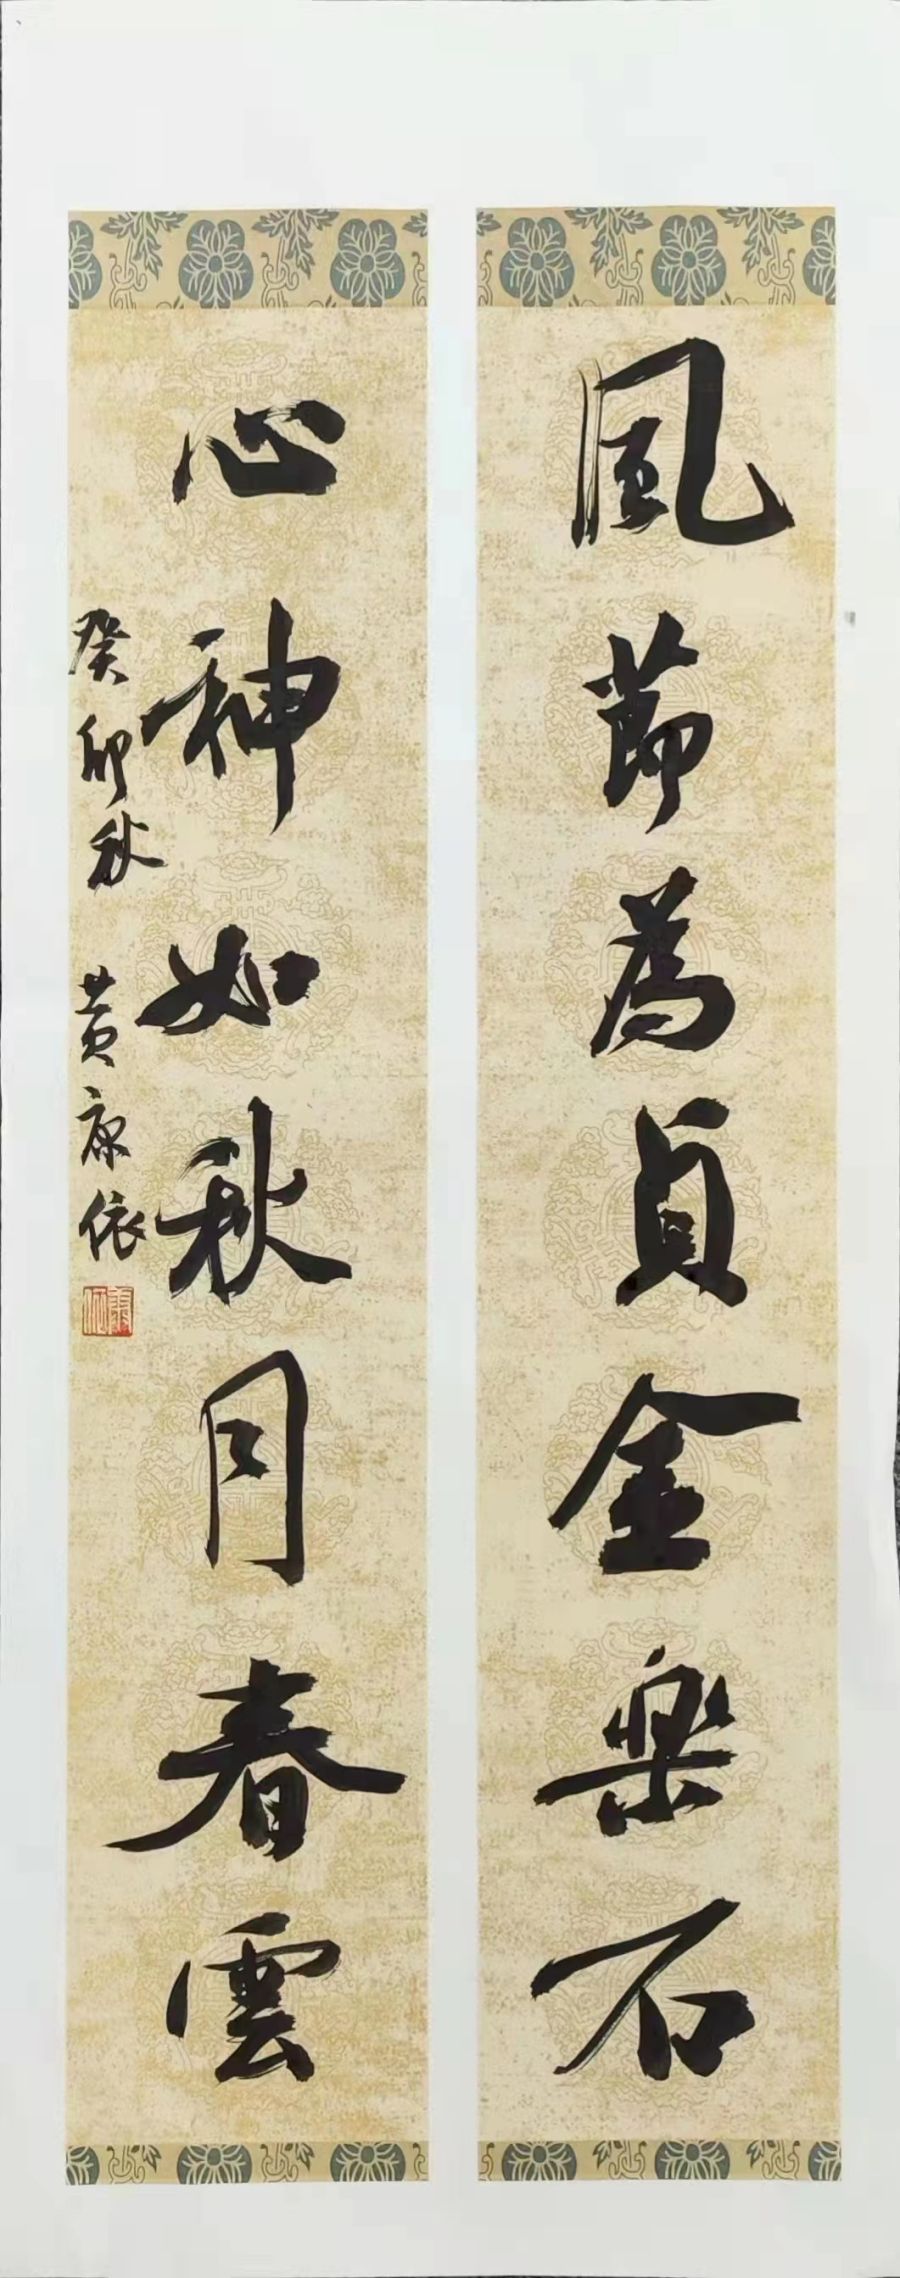 風節為貞金樂石
心神如秋月春雲
癸卯秋 黄康依